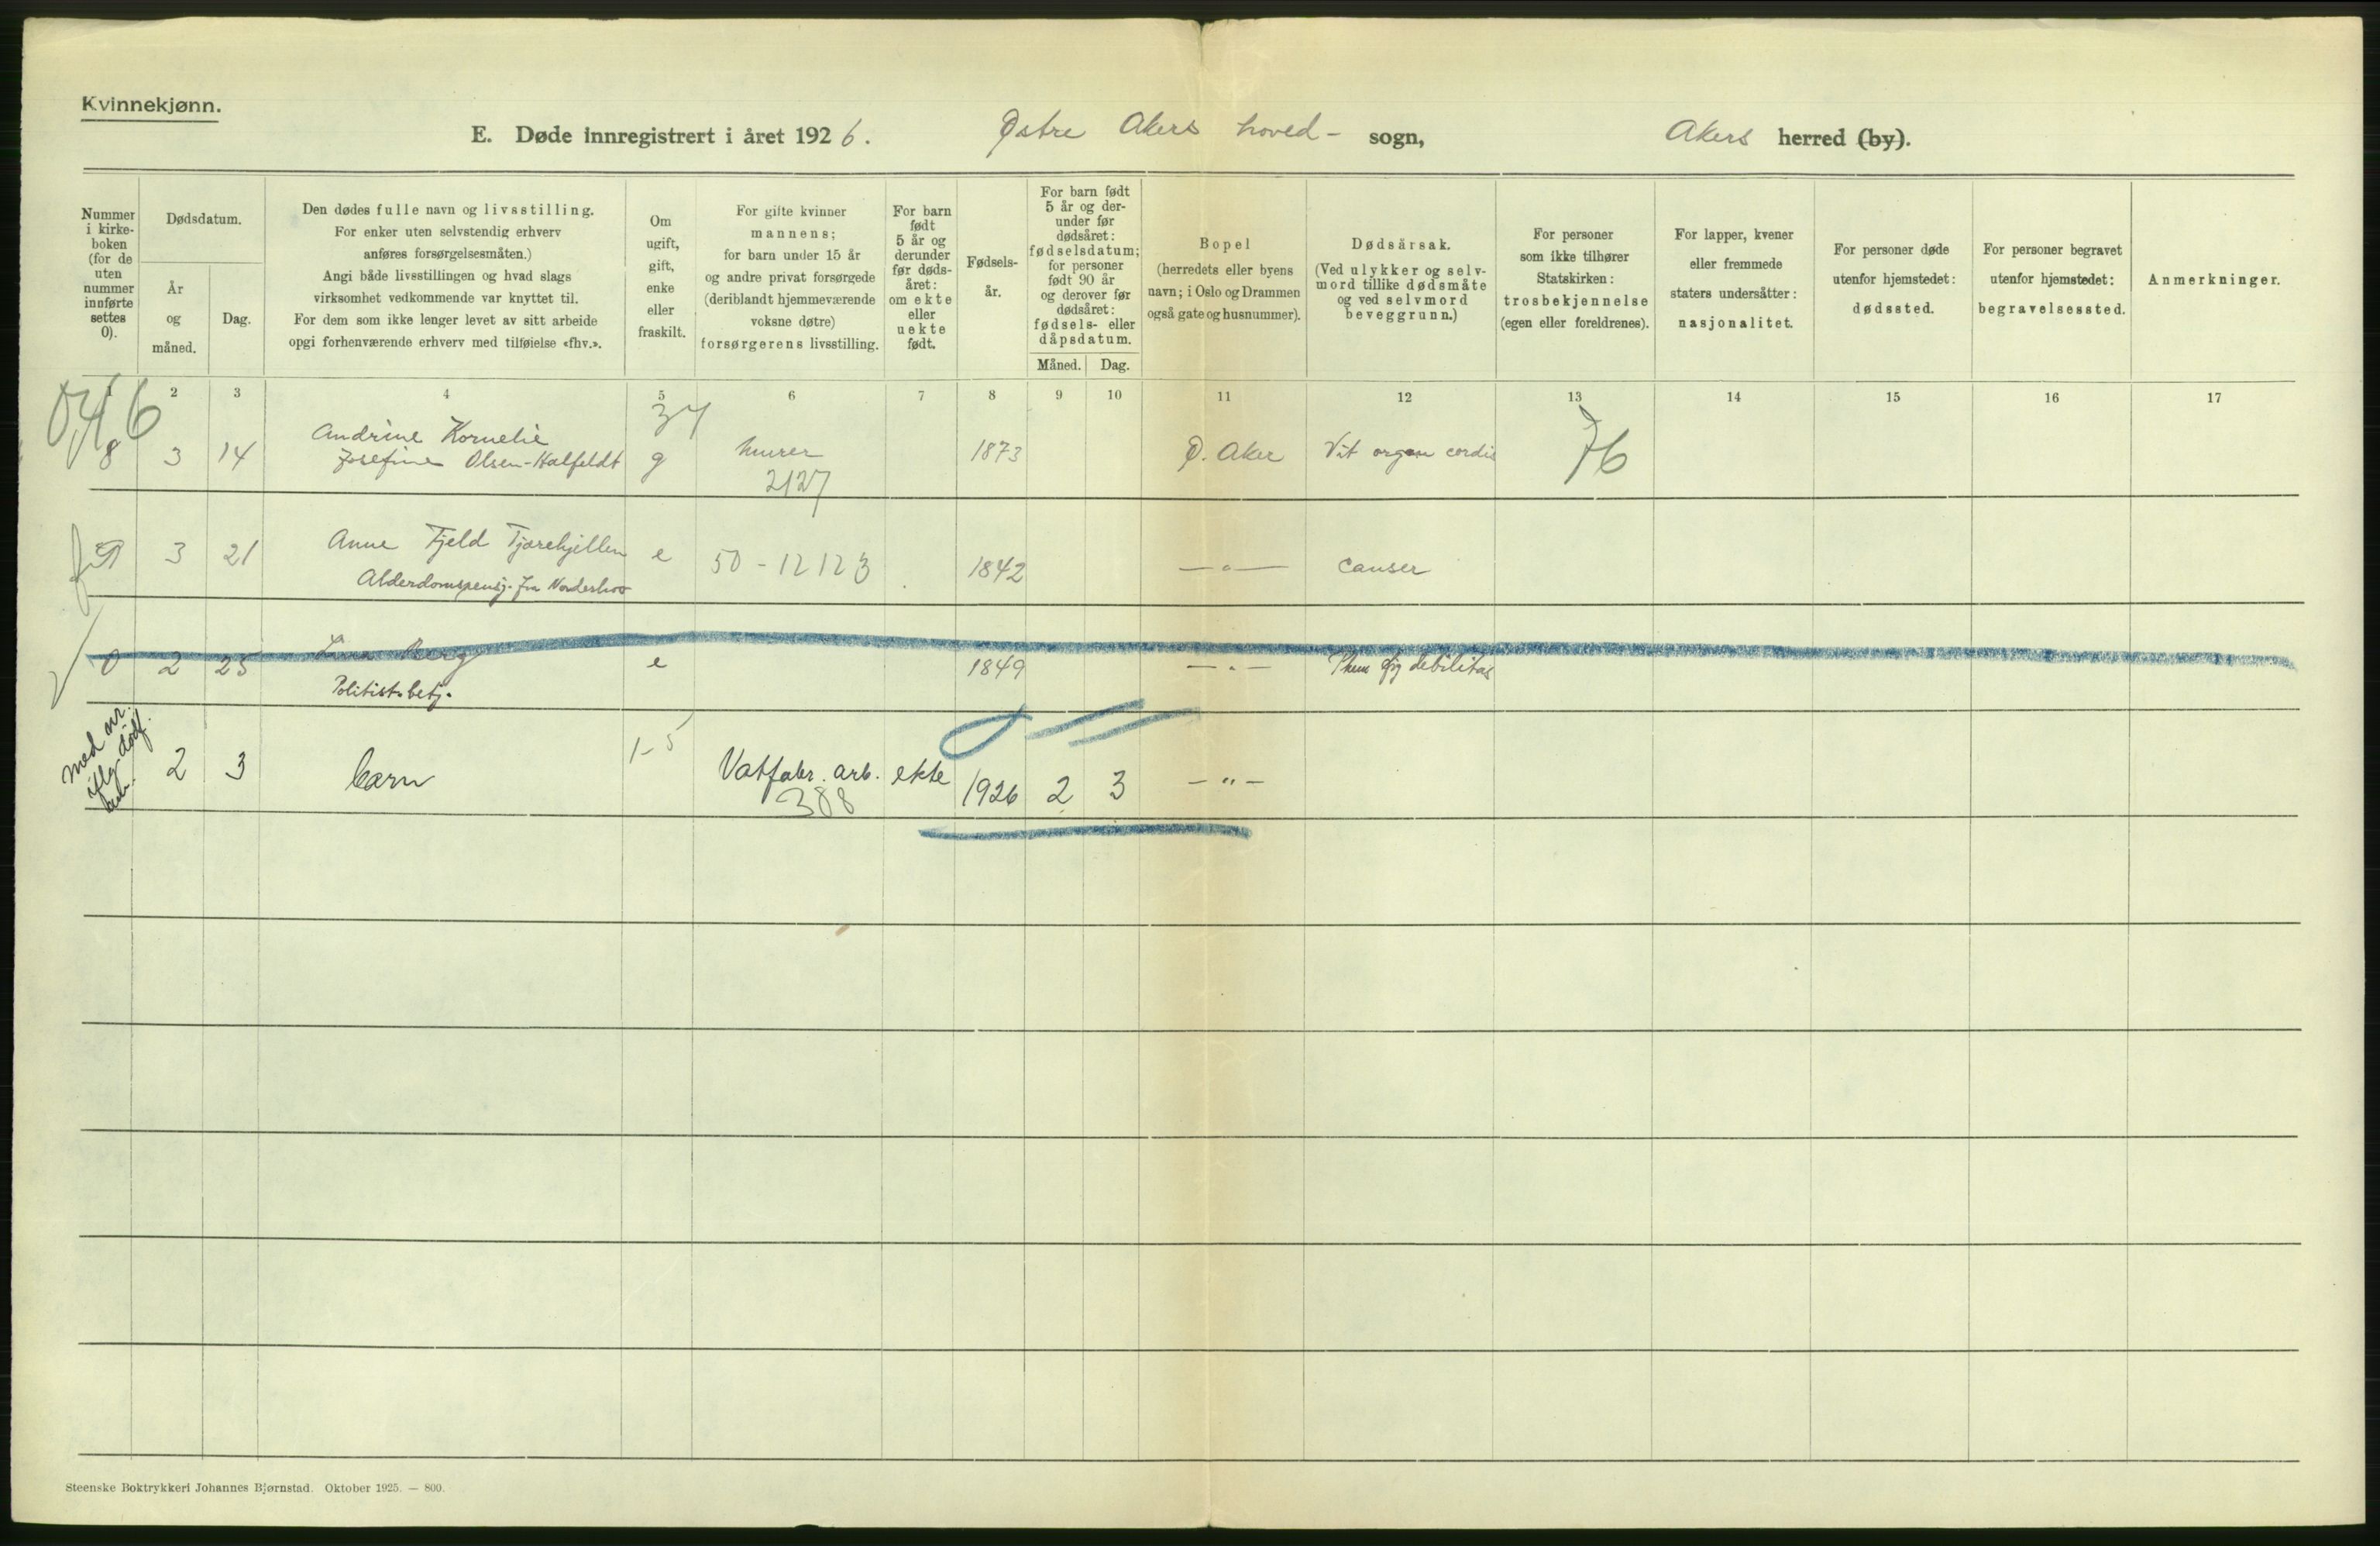 Kvinnekjønn.
E. Døde innregistrert i året 1926. Østre Akers hoved- sogn, Akers herred (by).
Nummer
i kirke-
boken
(for de
uten
nummer
innførte
settes
0).
Dødsdatum.
År
og
måned.
Dag.
Den dødes fulle navn og livsstilling.
For enker uten selvstendig erhverv
anføres forsørgelsesmåten.)
Angi både livsstillingen og hvad slags
virksomhet vedkommende var knyttet til.
For dem som ikke lenger levet av sitt arbeide
opgi forhenværende erhverv med tilføielse «fhv.».
Om
ugift,
gift,
enke
eller
fraskilt.
For gifte kvinner
mannens;
for barn under 15 år
og andre privat forsørgede
(deriblandt hjemmeværende
voksne døtre)
forsørgerens livsstilling.
For barn
født
5 år og
derunder
før døds-
året:
om ekte
eller
uekte
født.
Fødsels-
år.
For barn født
5 år og der-
under før
dødsåret:
fødselsdatum;
for personer
født 90 år
og derover før
dødsåret:
fødsels- eller
dåpsdatum.
Måned. Dag.
Bopel
(herredets eller byens
navn; i Oslo og Drammen
også gate og husnummer).
Dødsårsak.
(Ved ulykker og selv-
mord tillike dødsmåte
og ved selvmord
beveggrunn.)
For personer
som ikke tilhører
Statskirken:
trosbekjennelse
(egen eller foreldrenes).
For lapper, kvener
eller fremmede
staters undersåtter:
nasjonalitet.
For personer døde
utenfor hjemstedet:
dødssted.
For personer begravet
utenfor hjemstedet:
begravelsessted.
Anmerkninger.
1 2 3 4 5 6 7 8 9 10 11 12 13 14 15 16 17
37
Andrine Kornelie
8 3 14 Josefine Olsen-Halfeldt g murer 1873 Ø. Aker Vit organ cordis 76
2127
9 3 21 Anne Fjeld Tjærehjellen e 50 - 12123 1842 — " — Canser
Alderdomspensj. fra Norderhov
0 2 25 Berg e 1849 — " — debilitas
1-5
Med nr.
iflg. dødf.
2 3 barn Vatfabr. arb. ekte 1926 2 3 — " —
388
Steenske Boktrykkeri Johannes Bjørnstad. Oktober 1925. — 800.